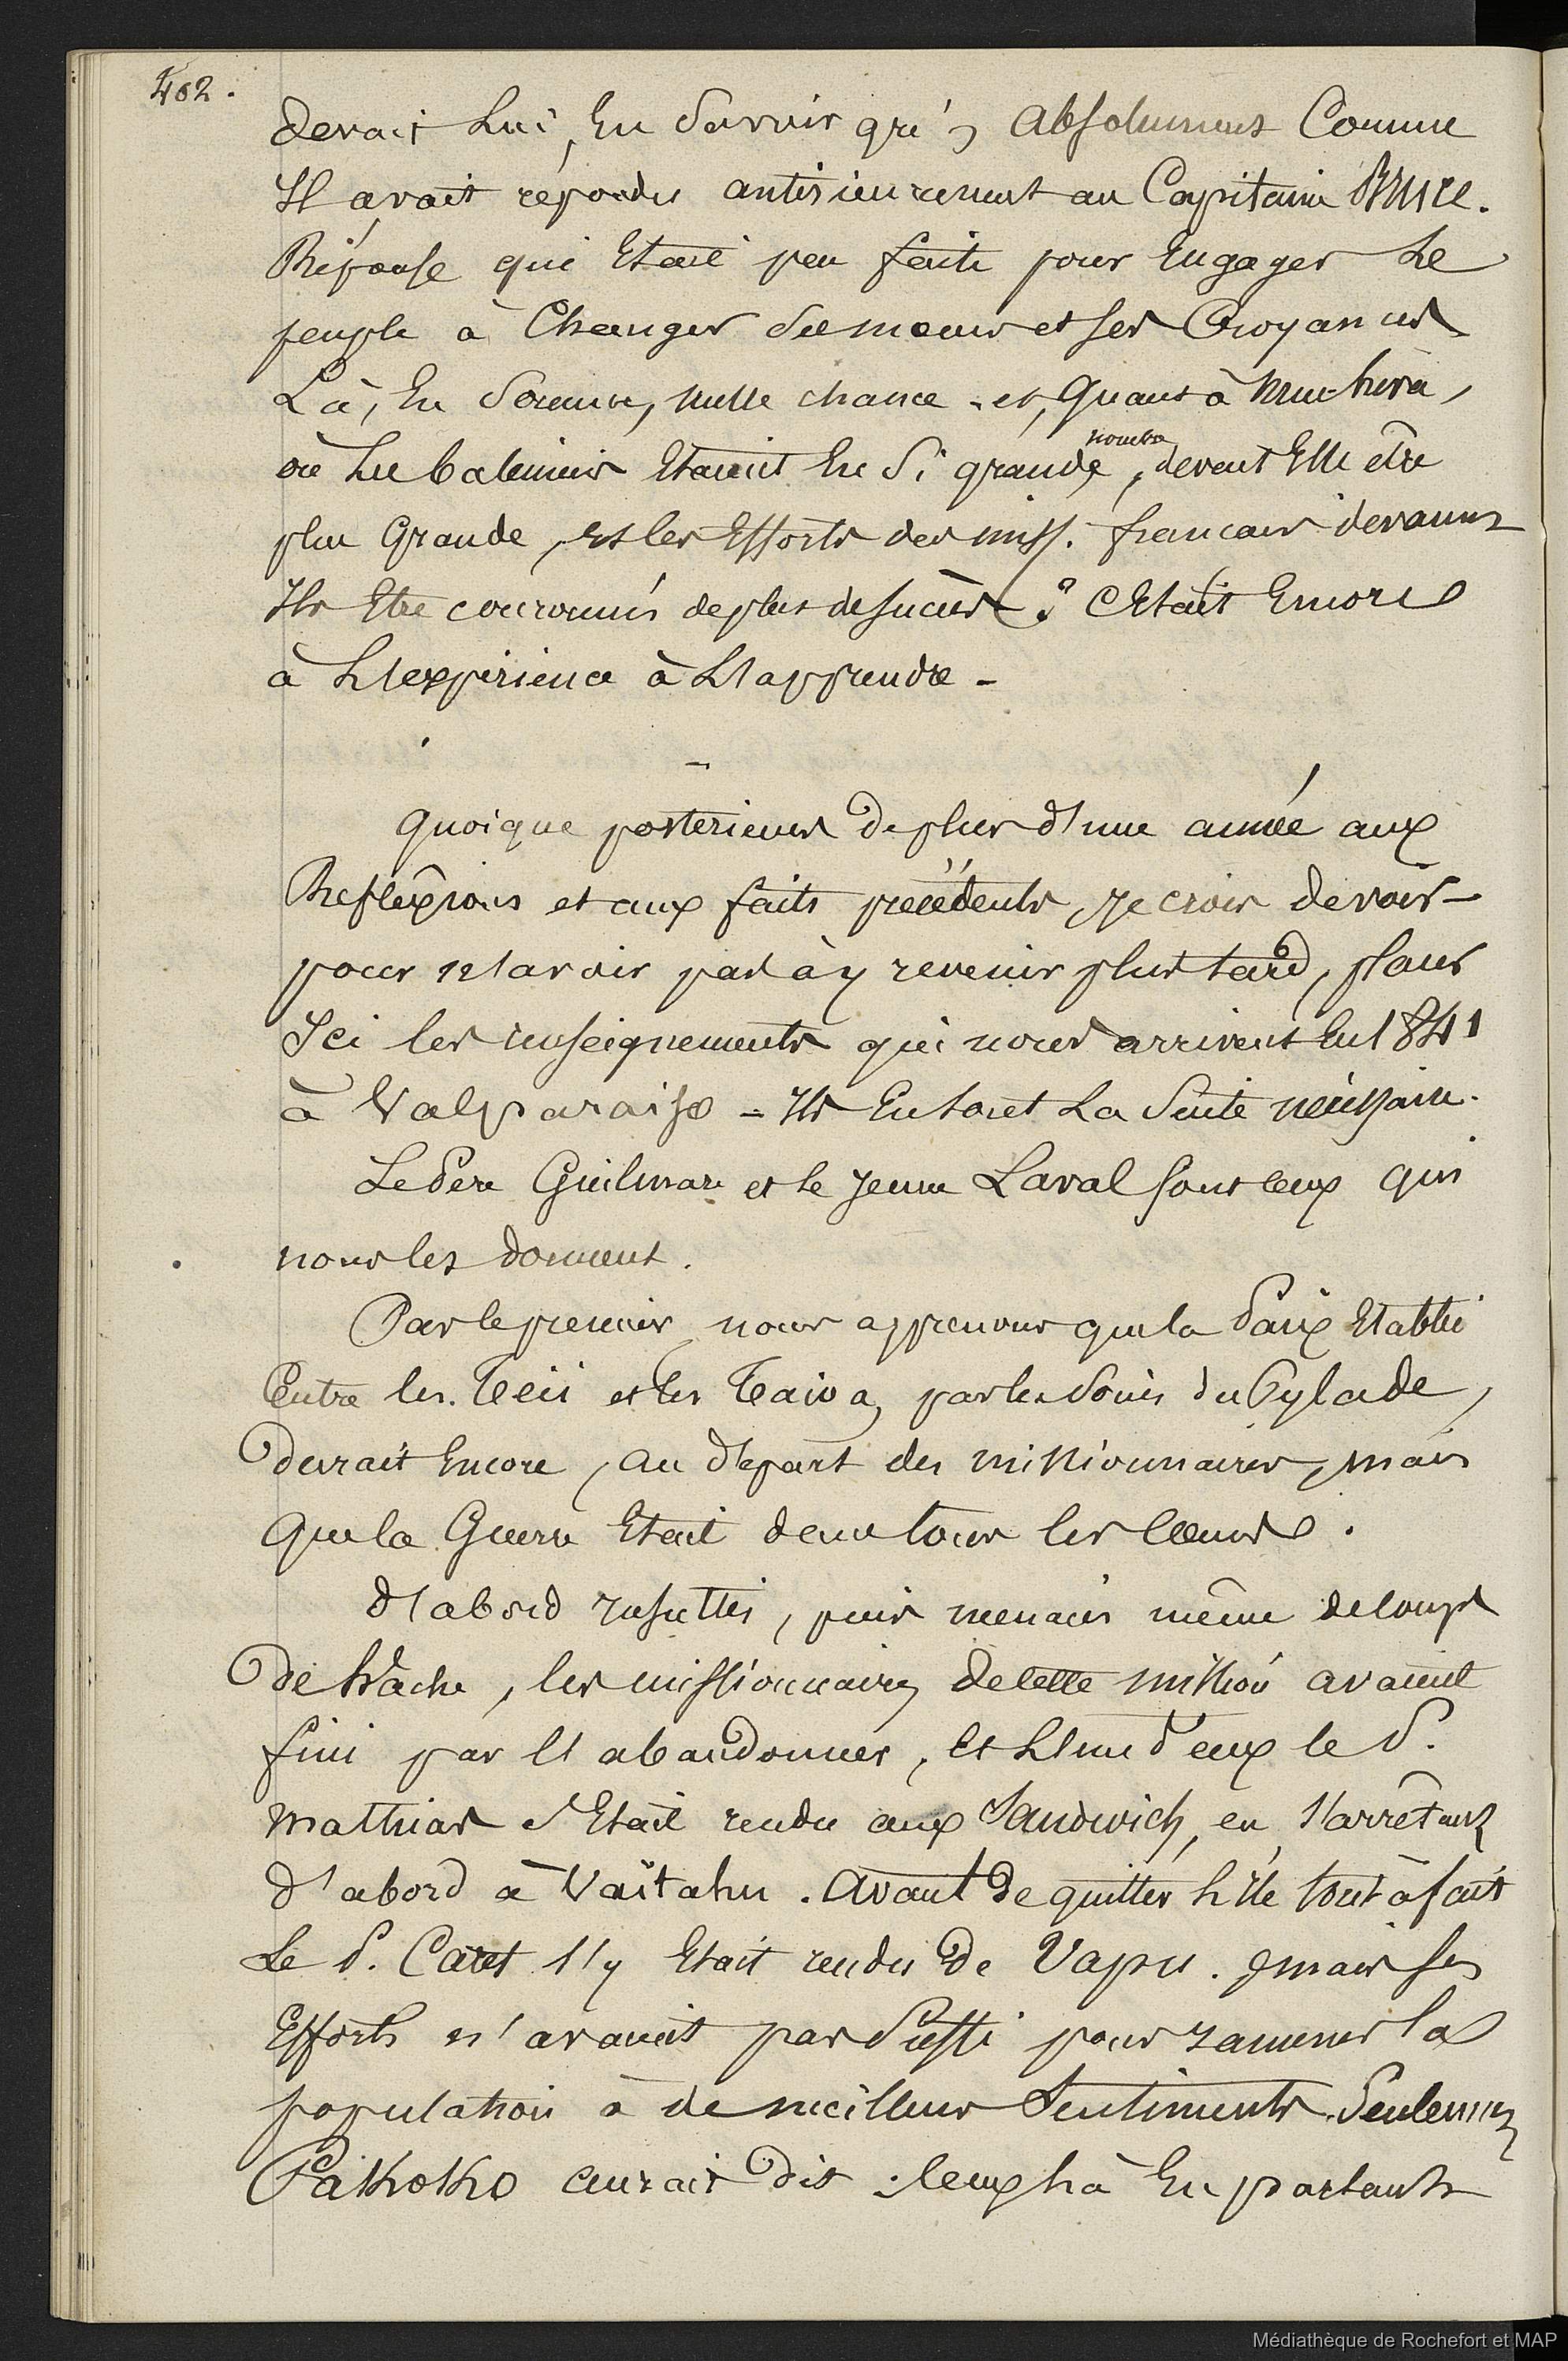 402.
devait Lui, En Savoir gré, Absolument Comme
Il avait répondu antérieurement au Capitaine Bruce.
Réponse qui Etait peu faite pour Engager Le
peuple à Changer Ses mœurs et ses Croyances
Là, En Somme, nulle chance - et, Quant à
où Les baleiniers Etaient En Si grande nombre, devait Elle être
plus Grande, et les Efforts des miss. francais devaient
Ils Etre couronnés de plus de succès ? C'Etait Encore
à L'expérience à L'apprendre -
Quoique posterieurs de plus d'une année aux
Reflexions et aux faits précédents, je crois devoir -
pour n'avoir pas à y revenir plus tard, placer
Ici les renseignements qui nous arrivent En 1841
à Valparaiso - Ils En sont La Suite nécessaire.
Le Père Guilmard et le jeune Laval sont ceux qui
nous les donnent.
Par le premier, nous apprenons que la Paix Etablie
Entre les Teii et les Taioa, par les Soins du Pylade,
durait Encore, au départ des missionnaires, mais
Que la Guerre Etait dans tous les Cœurs.
D'abord insultés, puis menacés même de coups
de hache, les missionnaires de cette mission avaient
fini par l'abandonner, Et L'un d'eux le P.
Mathias S'Etait rendu aux Sandwich, en s'arrêtant
d'abord à Vaïtahu. Avant de quitter L'île tout à fait
Le P. Caret s'y Etait rendu de Vapu. mais ses
Efforts n'avaient pas Suffi pour ramener la
population à de meilleurs Sentiments. Seulement
Pakoko aurait dit à ceux là En partant